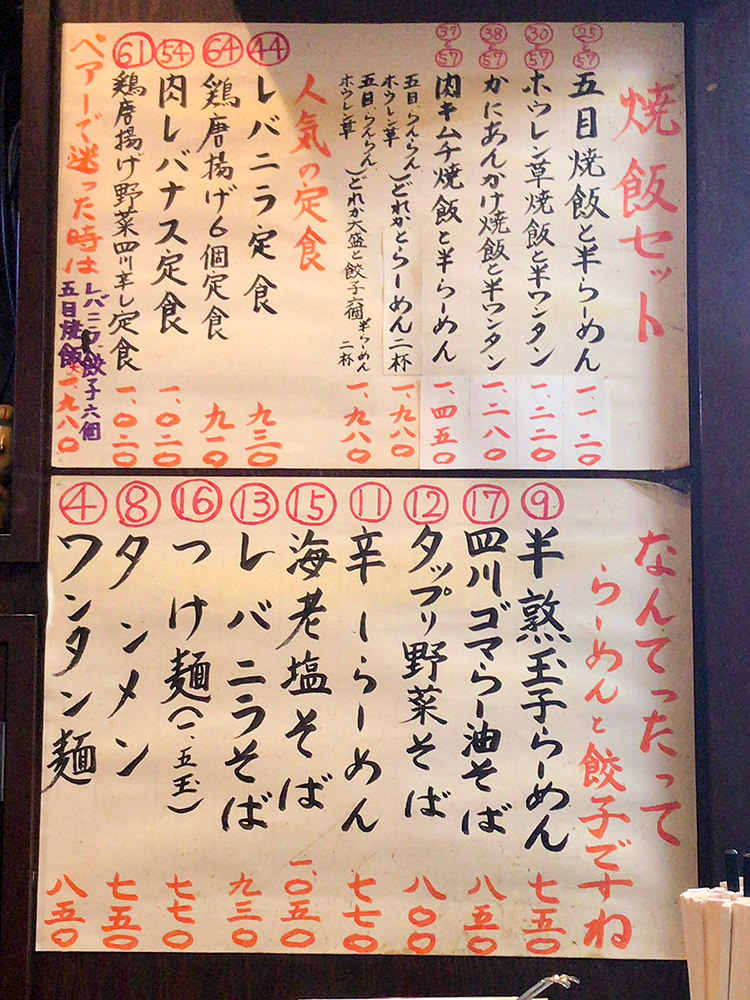 焼飯セット
25と57 五目焼飯と半らーめん 一、一二〇
30と57 ホウレン草焼飯と半ワンタン 一、二二〇
38と57 かにあんかけ焼飯と半ワンタン 一、二八〇
37と57 肉キムチ焼飯と半らーめん 一、四五〇
五目、らんらん、ホウレン草)どれかとらーめん二杯 一、九八〇
五目、らんらん、ホウレン草)どれか大盛と餃子六個 半らーめん二杯 一、九八〇
人気の定食
44 レバニラ定食 九三〇
64 鶏唐揚げ6個定食 九一〇
54 肉レバナス定食 一、〇二〇
61 鶏唐揚げ野菜四川辛し定食 一、〇二〇
ペアーで迷った時は レバニラ、餃子六個
五目焼飯 一、九八〇
なんてったって
らーめんと餃子ですね
9 半熟玉子らーめん 七五〇
17 四川ゴマらー油そば 八五〇
12 タップリ野菜そば 八〇〇
11 辛しらーめん 七七〇
15 海老塩そば 一、〇五〇
13 レバニラそば 九三〇
16 つけ麺(一、五玉) 七七〇
8 タンメン 七五〇
4 ワンタン麺 八五〇